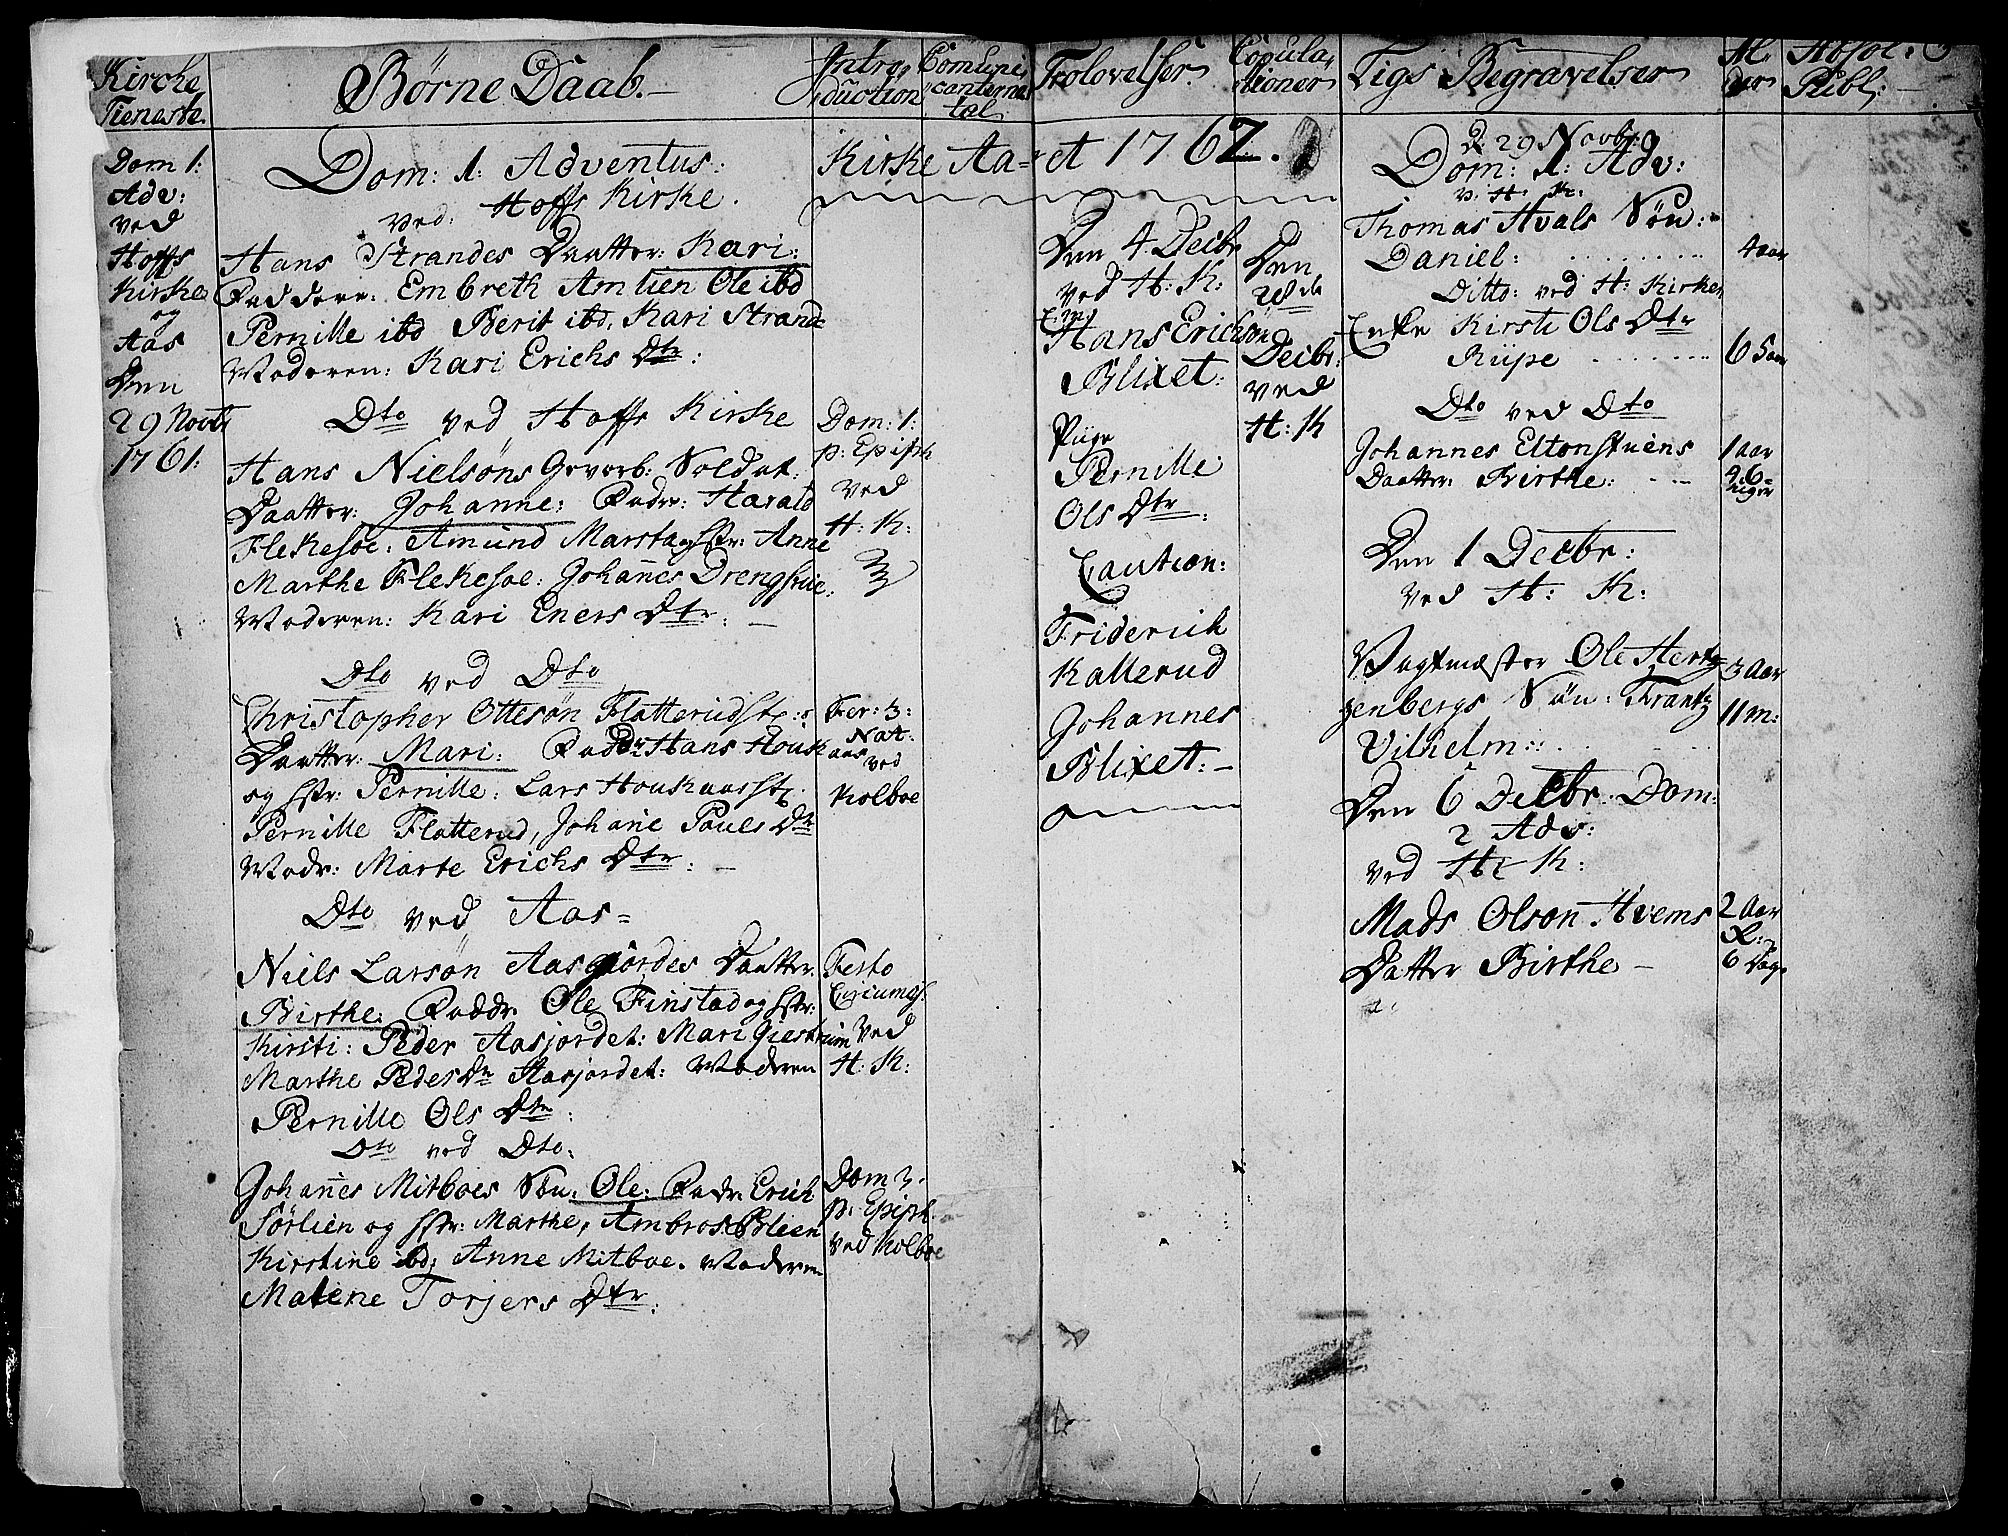 Kirche
Tieneste
Børne Daab.
Intro,
duction
Comuni,
canternes
tal
Trolovelser
Copula,
tioner
Ligs Begravelser
Al
der
Absol:
Publ:
Dom 1:
Adv:
ved
Hoffs
Kirke
og
Aas
Den
29 Novbr
1761:
Dom: 1: Adventus:
ved: Hoffs Kirke.
Hans Strandes Daatter: Kari:
Faddere: Embreth Amlien Ole ibd
Pernille ibd Berit ibd, Kari Strand=
Moderen: Kari Erichs Dtr:
Dto ved Hoffs Kirke
Hans Nielsøns Gevorb: Soldat
Daatter: Johanne: Fadr: Harald
Flekesoe: Amund Marstad hstr: Anne
Marthe Flekesoe: Johañes Drengstue:
Moderen: Kari Eners Dtr:
Dto ved Dto
Christopher Ottesøn Flatterudst:
Daatter: Mari: Faddr: Hans Houk
og hstr: Pernille: Lars Houknesst:
Pernille Flatterud, Johañe Pouls Dtr
Modr: Marte Erichs Dtr:
Dto ved Aas=
Niels Larsøn Aasjordes Daatter
Birthe: Faddr Ole Finstad og hstr:
Kirsti: Peder Aasjordet: Mari
Marthe Peders Dtr Aasjordet: Moderen
Pernille Ols Dtr:
Dto ved Dto.
Johañes Mitboes Søn: Ole: Fadr: Erich
Sørlien og hstr: Marthe, Ambros
Kirstine ibd, Anne Mitboe. Moderen
Malene Torjers Dtr:
Dom: 1:
p: Epiph
ved
H: K:
Fer: 3:
Nat:
ved
Kolboe
Festo
Circumcis:
ved
H: K:
Dom 3.
p: Epiph.
ved Kolboe
Kirke Aa=ret 1762.
Den 4 Decbr
ved H: K:
Hans Erichsøn
Blixet:
Pige
Pernille
Ols Dtr:
Caution:
Friderich
Kallerud
Johannes
Blixet:
Den
28de
Decbr:
ved
H: K
d. 29 Novbr
Dom: 1: Adv:
v: H: K:
Thomas Hvals Søn:
Daniel:
4 aar
Ditto: ved H: Kirke
Enke Kirsti Ols Dtr
Rüpe
65 aar
Dto ved Dto
Johannes Eltonstuens
Daatter: Birthe:
1 aar
6
uger
Den 1 Decbr:
ved H: K:
Vagtmester Ole Hert
zenbergs Søn: Frantz
Vilhelm:
3 Aar
11 m:
Den 6 Decbr. Dom:
2 Adv:
ved H: K:
Mads Olson Hvems
Datter Birthe
2 Aar
&
6 Dage